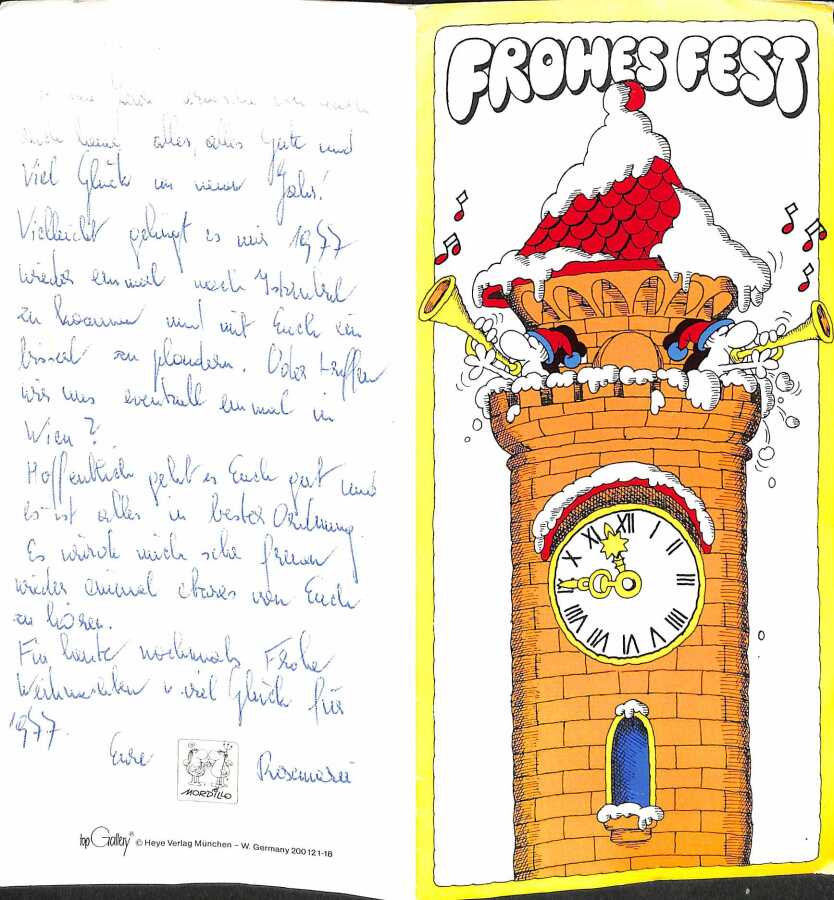 alles, alles Gute und
Viel Glück im neuen Jahr!
Vielleicht gelingt es mir 1977
wieder einmal nach Istanbul
zu kommen und mit Euch ein
bisserl zu plaudern. Oder treffen
wir uns eventuell einmal in
Wien?
Hoffentlich geht es Euch gut und
es ist alles in bester Ordnung.
Es würde mich sehr freuen
wieder einmal etwas von Euch
zu hören.
Für heute nochmals Frohe
Weihnachten u. viel Glück für
1977.
Eure Rosemarie
MORDILLO
top Gallery® © Heye Verlag München – W. Germany 200 121-18
FROHES FEST
XII I II III IIII V VI VII VIII IX X XI